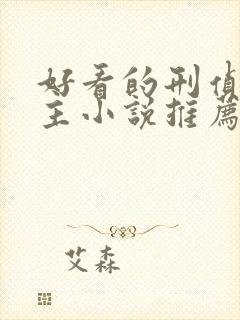 好看的刑偵
主小說推薦
艾森